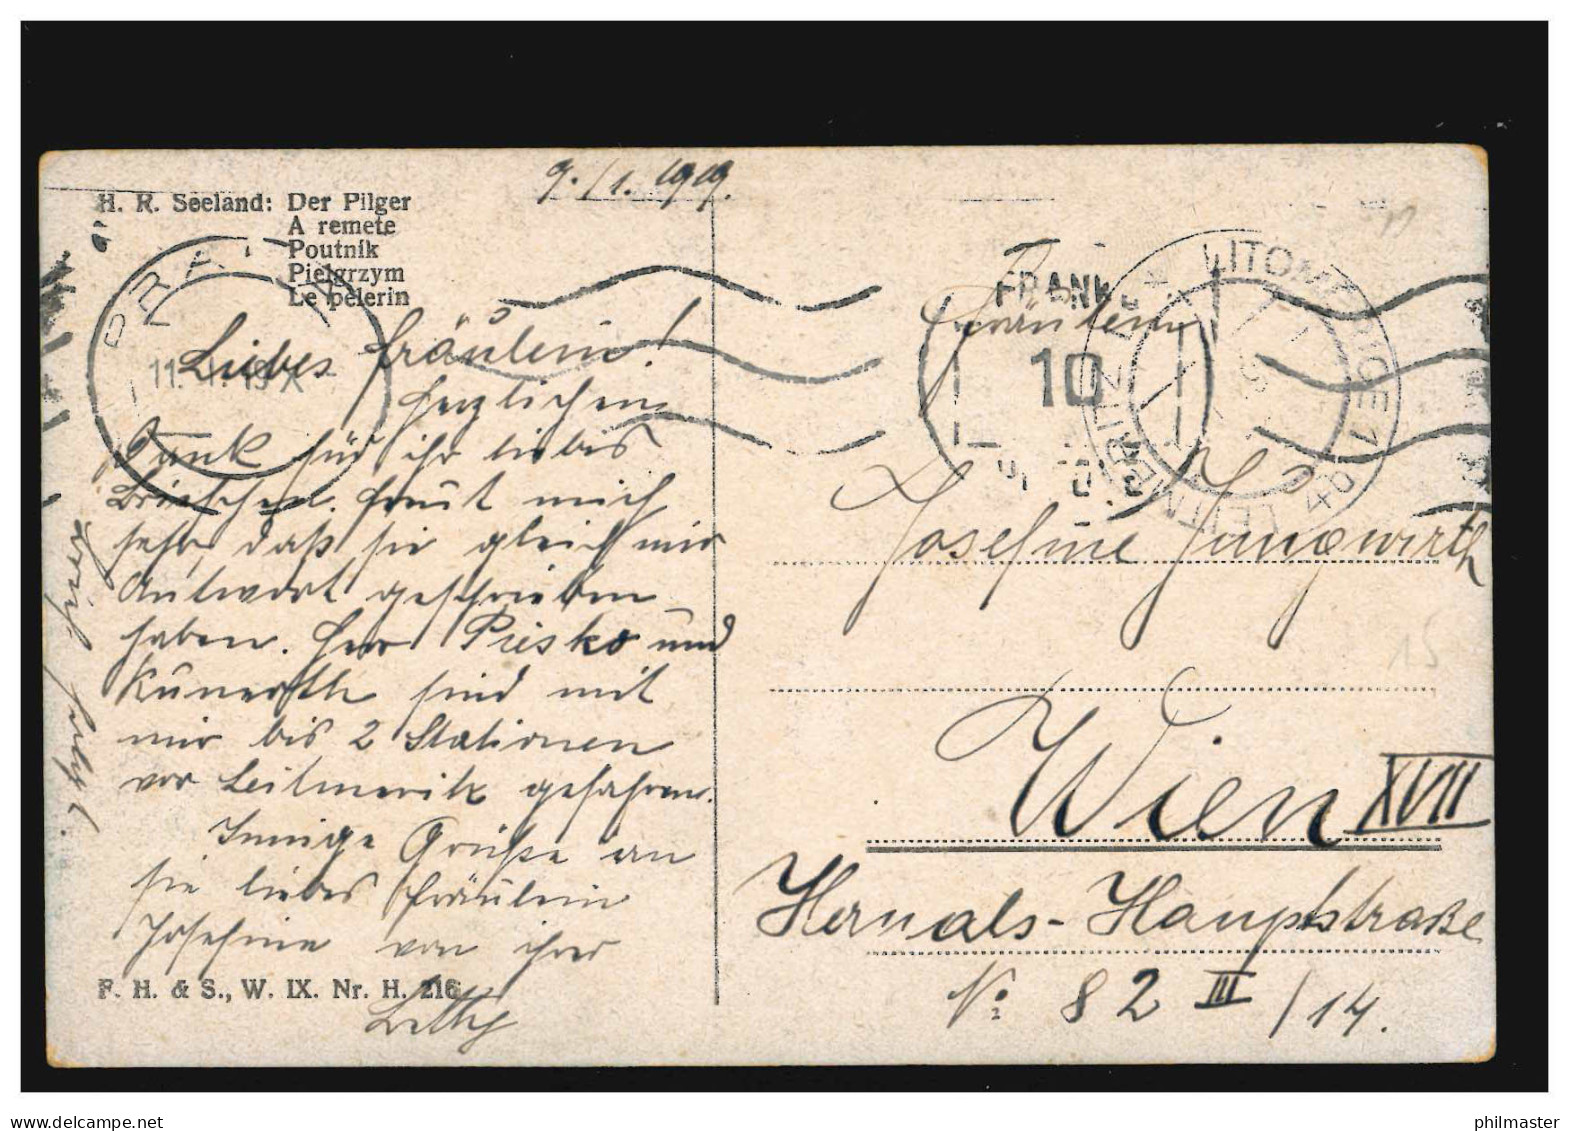 9./1. 1919.
H. R. Seeland: Der Pilger
A remete
Poutník
Pielgrzym
Le pèlerin
PRA
11. 1. 19 X
Liebes Fräulein!
Herzlichen
Dank für ihr liebes
Briefchen. Freut mich
sehr, daß sie gleich mir
Antwort geschrieben
haben. Herr Pisko und
Kunerth sind mit
mir bis 2 Stationen
vor Leitmeritz gefahren.
Innige Grüße an
sie liebes Fräulein
Josefine von ihrer
Letty
F. H. & S., W. IX. Nr. H. 216
FRANK
10
LITOMĚŘICE 1
LEITMERITZ 1
4b
Fräulein
Josefine Jungwirth
Wien XVII
Hernals-Hauptstraße
No. 82 III/14.
15
philmaster